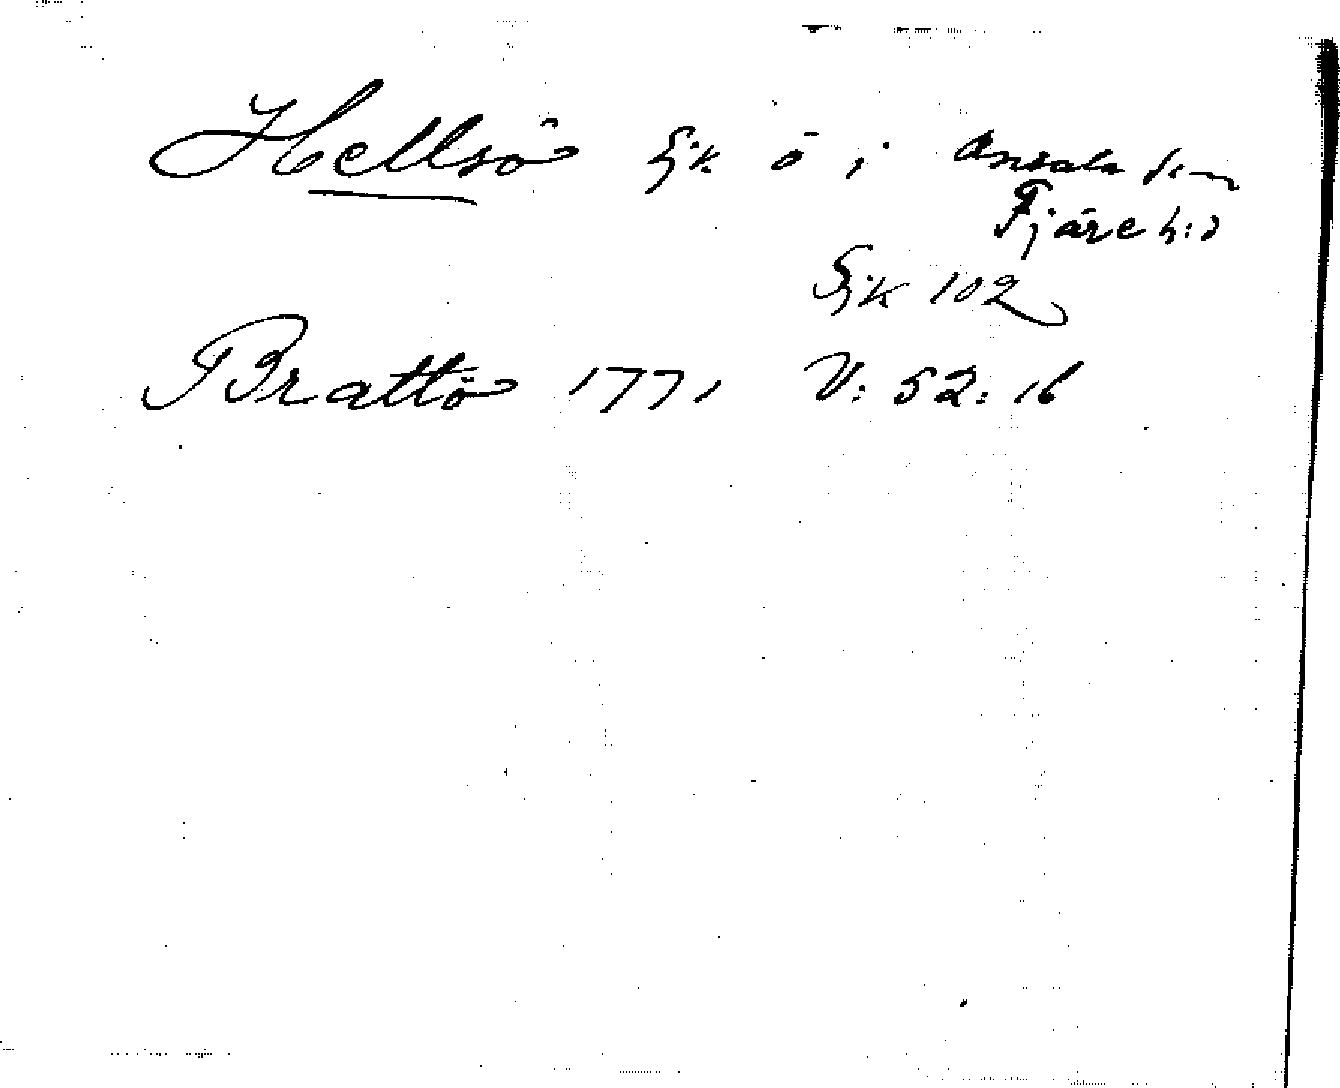 Hellsö Sjk ö i Onsala sn
Fjäre h:d
Sjk 102
Brattö 1771 V: 52: 16